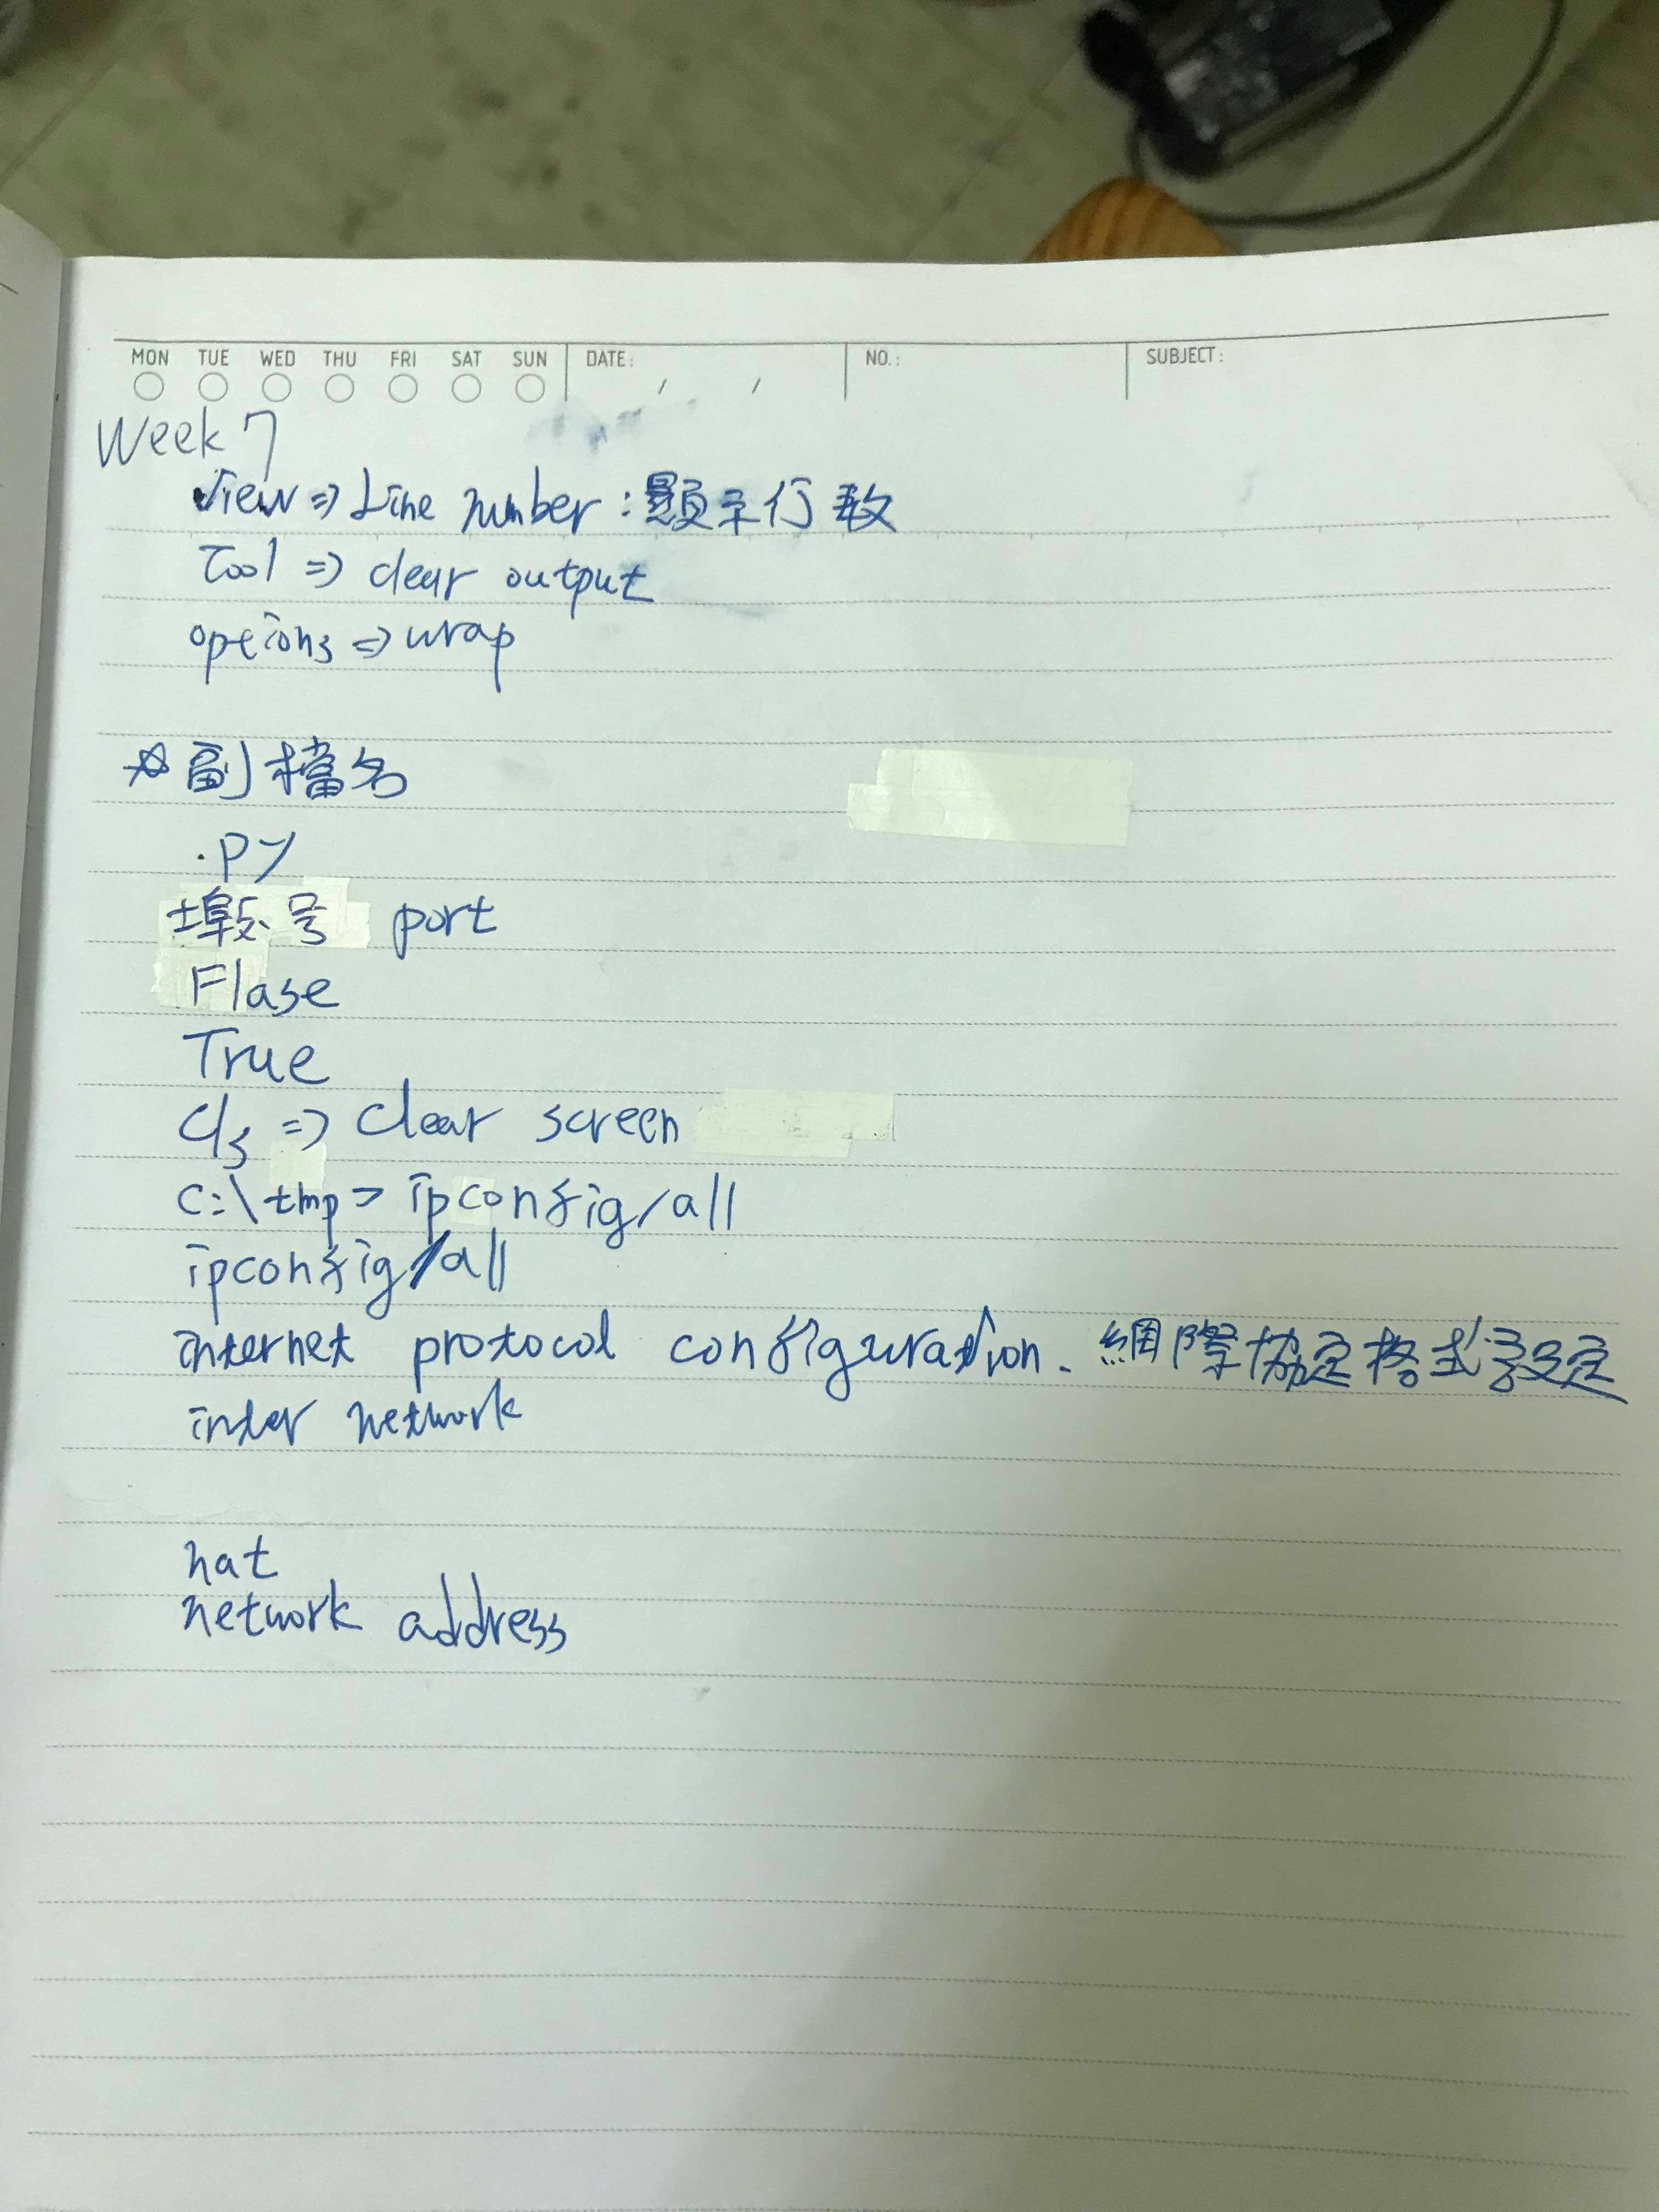 MON TUE WED THU FRI SAT SUN DATE: / / NO.: SUBJECT:
Week 7
View => Line number : 顯示行數
Tool => clear output
opeions => wrap
☆副檔名
.py
埠號 port
Flase
True
cls => Clear screen
C:\tmp> ipconfig/all
ipconfig/all
internet protocol configuration. 網際協定格式設定
inter network
nat
network address